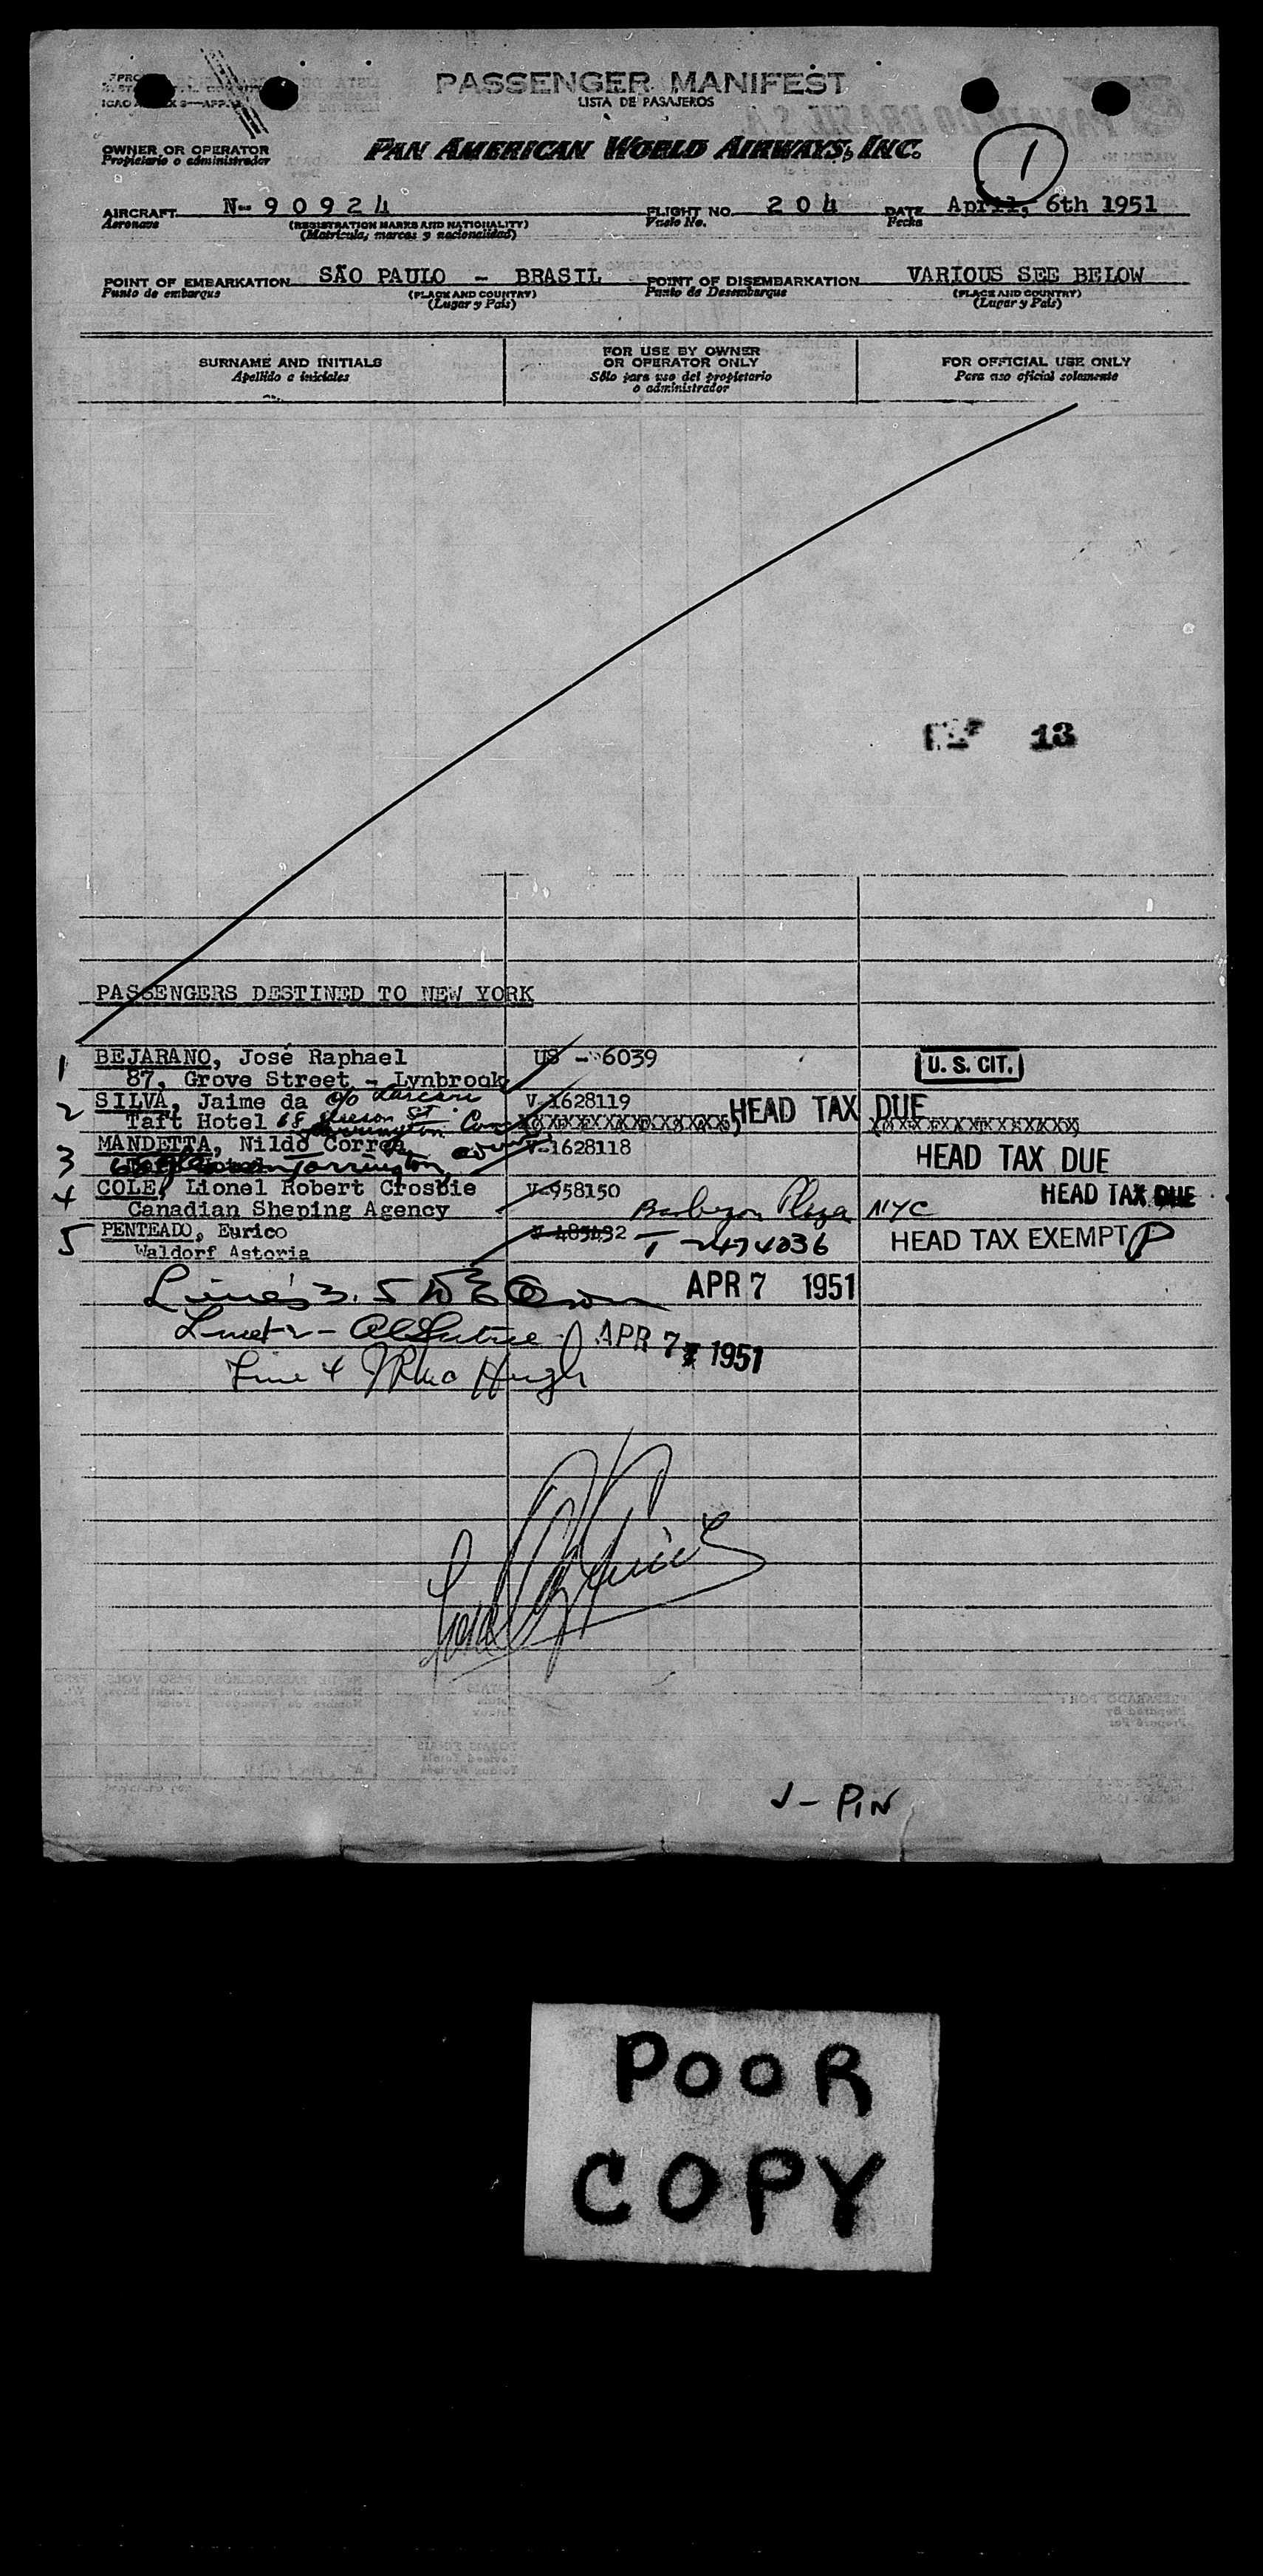 PASSENGER MANIFEST
LISTA DE PASAJEROS
OWNER OR OPERATOR
Propietario o administrador
PAN AMERICAN WORLD AIRWAYS, INC.
1
AIRCRAFT N-90924 FLIGHT NO. 204 DATE April, 6th 1951
Aeronave (REGISTRATION MARKS AND NATIONALITY) Vuelo No. Fecha
(Matrícula, marcas y nacionalidad)
POINT OF EMBARKATION SÃO PAULO - BRASIL POINT OF DISEMBARKATION VARIOUS SEE BELOW
Punto de embarque (PLACE AND COUNTRY) Punto de Desembarque (PLACE AND COUNTRY)
(Lugar y País) (Lugar y País)
SURNAME AND INITIALS FOR USE BY OWNER OR OPERATOR ONLY FOR OFFICIAL USE ONLY
Apellido e iniciales Sólo para uso del propietario o administrador Para uso oficial solamente
13
PASSENGERS DESTINED TO NEW YORK
1 BEJARANO, José Raphael US - 6039 U. S. CIT.
87, Grove Street - Lynbrook
2 SILVA, Jaime da c/o V-1628119 HEAD TAX DUE
Taft Hotel 68 St.
3 MANDETTA, Nildo Correa V-1628118 HEAD TAX DUE
Torrington
4 COLE, Lionel Robert Crosbie V-958150 HEAD TAX DUE
Canadian Sheping Agency Barbizon Plaza NYC
5 PENTEADO, Eurico V-485432 T-2474036 HEAD TAX EXEMPT P
Waldorf Astoria
APR 7 1951
APR 7 1951
Line 4
J-PIN
POOR
COPY